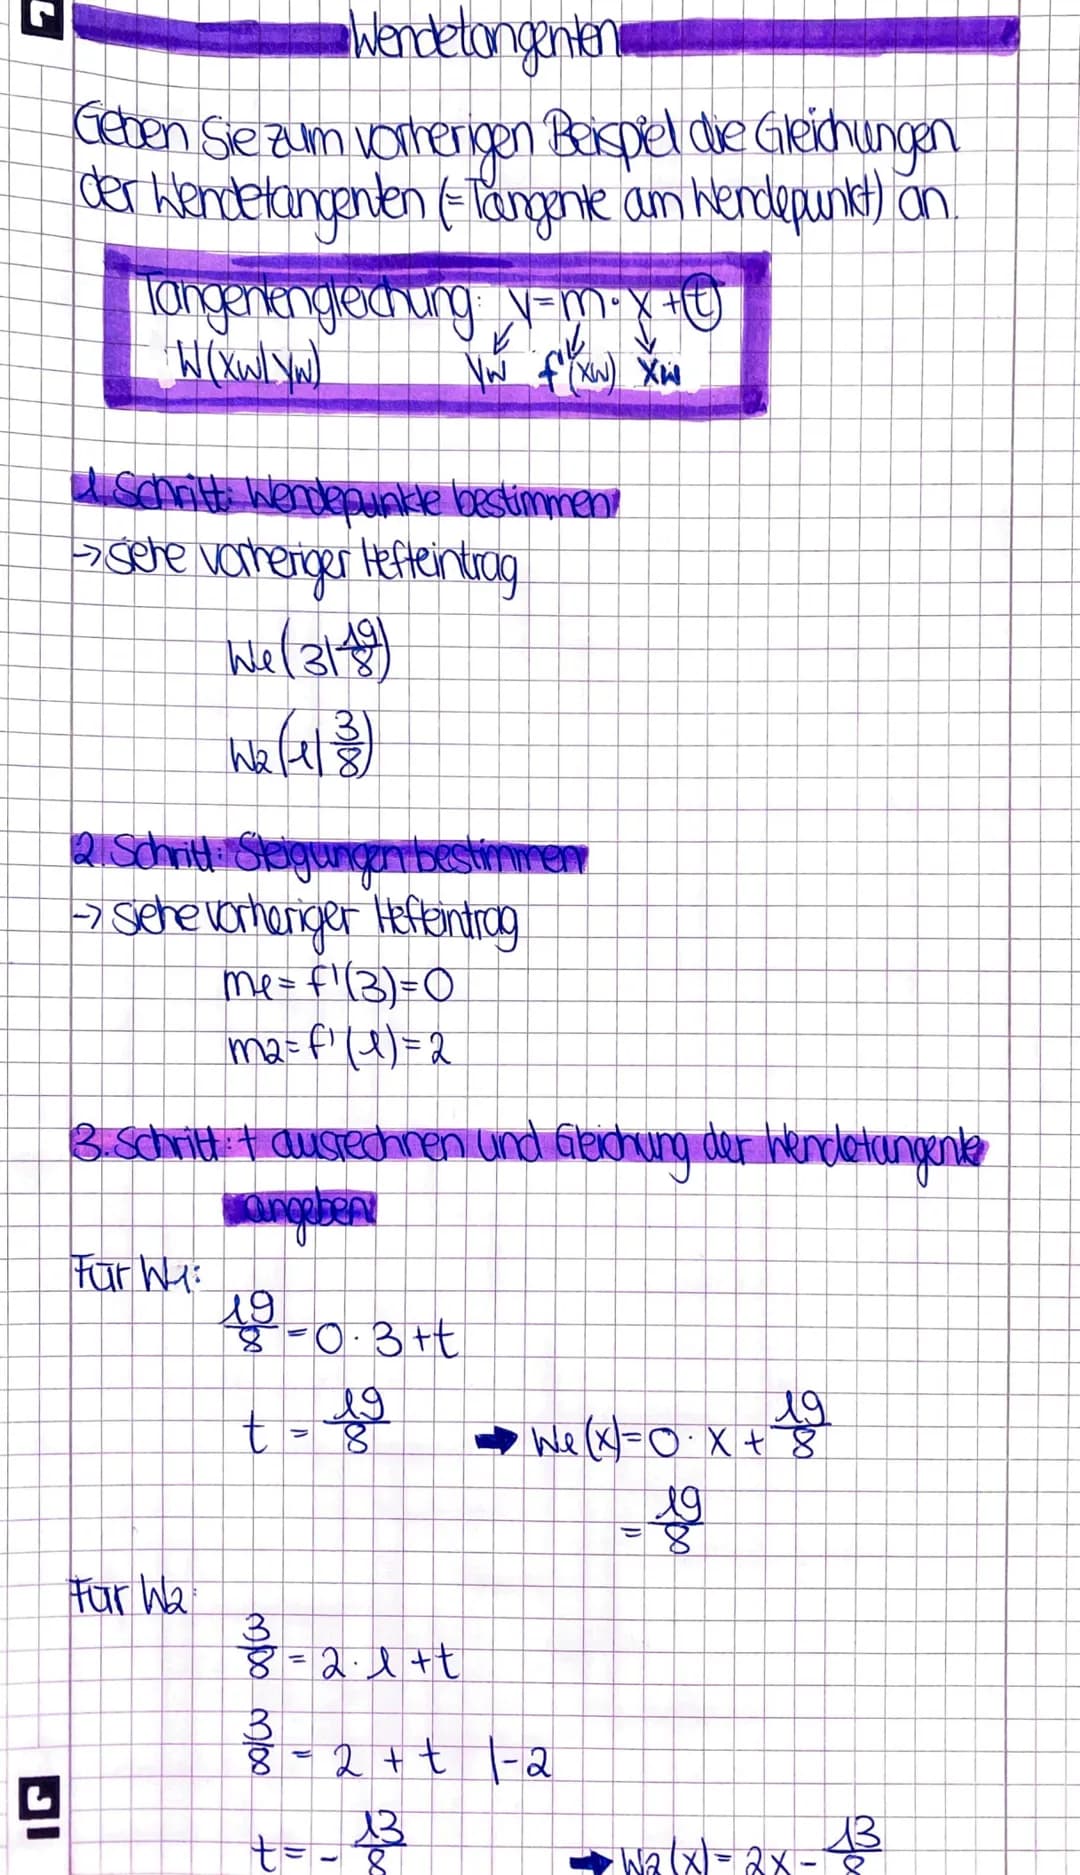 Wendetangenten
Geben Sie zum vorherigen Beispiel die Gleichungen
der Wendetangenten (=Tangente am Wendepunkt) an.
Tangentengleichung: y=m·x+t
W(xw|yw) yw f'(xw) xw
1. Schritt: Wendepunkte bestimmen
→ siehe vorheriger Hefteintrag
W1(3|19/8)
W2(1|3/8)
2. Schritt: Steigungen bestimmen
→ siehe vorheriger Hefteintrag
m1=f'(3)=0
m2=f'(1)=2
3. Schritt: t ausrechnen und Gleichung der Wendetangente
angeben
Für W1:
19/8=0·3+t
t=19/8 → W1(x)=0·x+19/8
=19/8
Für W2:
3/8=2·1+t
3/8=2+t |-2
t=-13/8 → W2(x)=2x-13/8